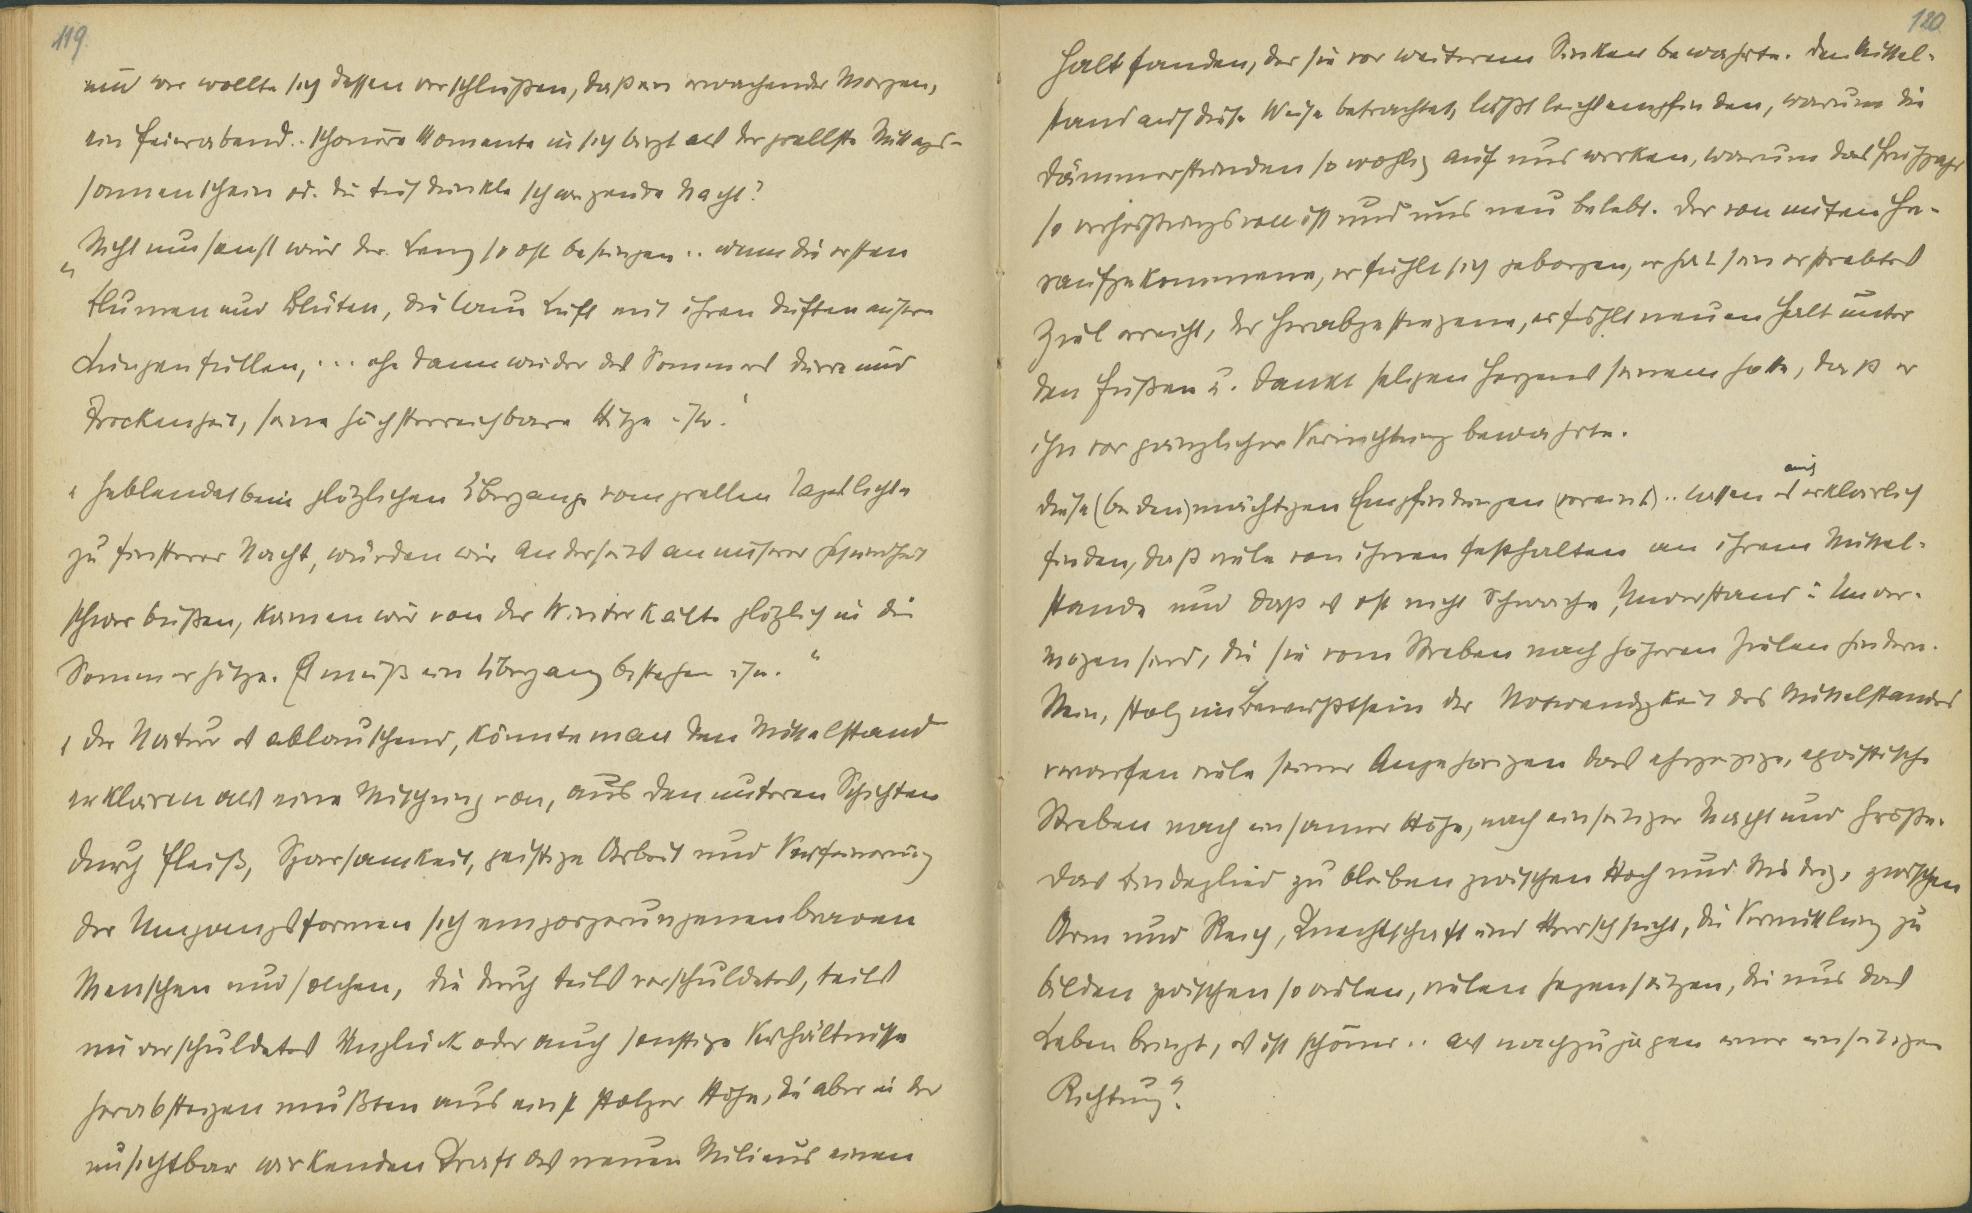 119.
und wer wollte sich dessen verschließen, daß ein erwachender Morgen,
ein Feierabend.. schönere Momente in sich birgt als der grellste Mittags-
sonnenschein od. die tief dunkle schweigende Nacht?
„Nicht umsonst wird der Lenz so oft besungen.. wenn die ersten
Blumen und Blüten, die laue Luft mit ihren Düften unsere
Lungen füllen, ... ehe dann wieder des Sommers Dürre und
Trockenheit, seine höchsterreichbare Hitze
„Geblendet beim plötzlichen Übergange vom grellen Tageslichte
zu finsterer Nacht, würden wir anderseits an unserer Gesundheit
schwer büßen, kämen wir von der Winterkälte plötzlich in die
Sommerhitze. Es muß ein Übergang bestehen
der Natur es ablauschend, könnte man den Mittelstand
erklären als eine Mischung von, aus den unteren Schichten
durch Fleiß, Sparsamkeit, geistige Arbeit und Verfeinerung
der Umgangsformen sich emporgerungenen braven
Menschen und solchen, die durch teils verschuldetes, teils
unverschuldetes Unglück oder auch sonstige Verhältnisse
herabsteigen mußten aus einst stolzer Höhe, die aber in der
unsichtbar wirkenden Kraft des neuen Milieus einen
120
Halt fanden, der sie vor weiterem Sinken bewahrte. Den Mittel-
stand auf diese Weise betrachtet, läßt leicht empfinden, warum die
Dämmerstunden so wohlig auf uns wirken, warum das Frühjahr
so verheißungsvoll ist und uns neu belebt. Der von unten he-
raufgekommene, er fühlt sich geborgen, er hat sein erstrebtes
Ziel erreicht, der Herabgestiegene, er fühlt neuen Halt unter
den Füßen u. dankt seligen Herzens seinem Gotte, daß er
ihn vor gänzlicher Vernichtung bewahrte.
diese (beiden) mächtigen Empfindungen (vereint).. lassen es auch erklärlich
finden, daß viele von ihnen festhalten an ihrem Mittel-
stande und daß es oft nicht Schwäche, Unverstand u. Unver-
mögen sind, die sie vom Streben nach höheren Zielen hindern.
Nein, stolz im Bewußtsein der Notwendigkeit des Mittelstandes
verwarfen viele seiner Angehörigen das ehrgeizige, egoistische
Streben nach einsamer Höhe, nach einseitiger Macht und Größe.
Das Bindeglied zu bleiben zwischen Hoch und Niedrig, zwischen
Arm und Reich, Knechtschaft und Herrschsucht, die Vermittlung zu
bilden zwischen so vielen, vielen Gegensätzen, die uns das
Leben bringt, es ist schöner.. als nachzujagen einer einseitigen
Richtung?